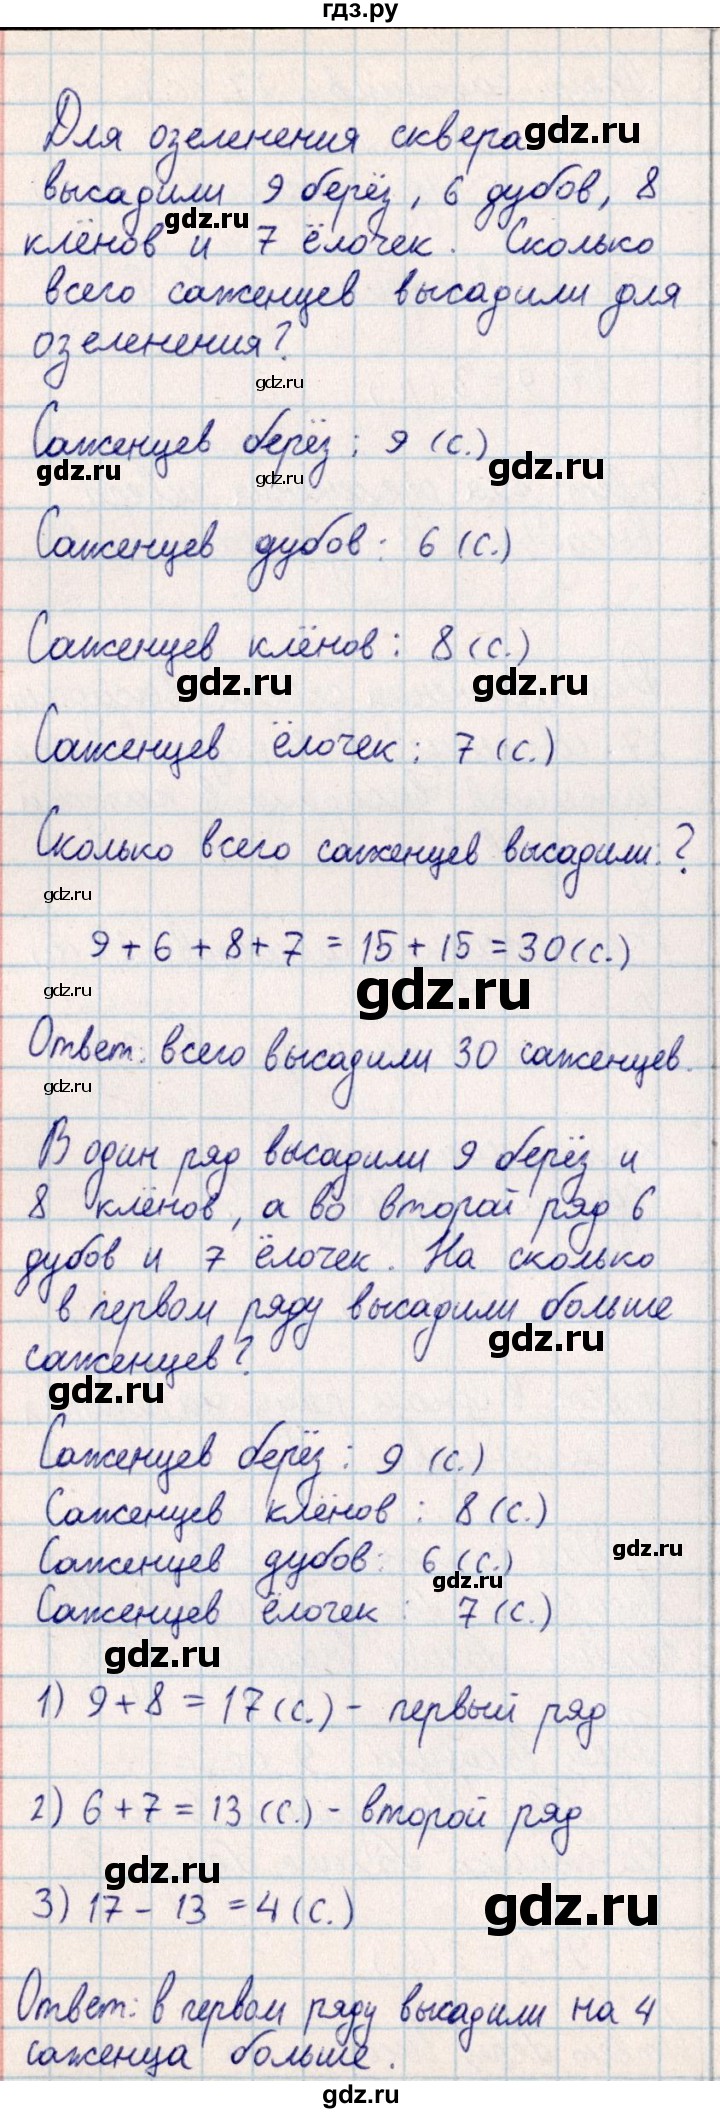 гдз.ру
Для озеленения сквера
gdz.ru
высадили 9 берёз, 6 дубов, 8
gdz.ru
клёнов и 7 ёлочек. Сколько
всего саженцев высадили для
озеленения?
gdz.ru
Саженцев берёз: 9 (с.)
gdz.ru
gdz.ru
gdz.ru
Саженцев дубов: 6 (с.)
Саженцев клёнов: 8 (с.)
gdz.ru
gdz.ru
Саженцев ёлочек: 7 (с.)
Сколько всего саженцев высадили: ?
gdz.ru
9 + 6 + 8 + 7 = 15 + 15 = 30 (с.)
gdz.ru
gdz.ru
Ответ: всего высадили 30 саженцев.
gdz.ru
В один ряд высадили 9 берёз и
8 клёнов, а во второй ряд 6
дубов и 7 ёлочек. На сколько
в первом ряду высадили больше
gdz.ru
саженцев?
gdz.ru
Саженцев берёз: 9 (с.)
Саженцев клёнов: 8 (с.)
gdz.ru
Саженцев дубов: 6 (с.)
gdz.ru
Саженцев ёлочек: 7 (с.)
gdz.ru
1) 9 + 8 = 17 (с.) - первый ряд
2) 6 + 7 = 13 (с.) - второй ряд
gdz.ru
3) 17 - 13 = 4 (с.)
gdz.ru
Ответ: в первом ряду высадили на 4
саженца больше.
gdz.ru